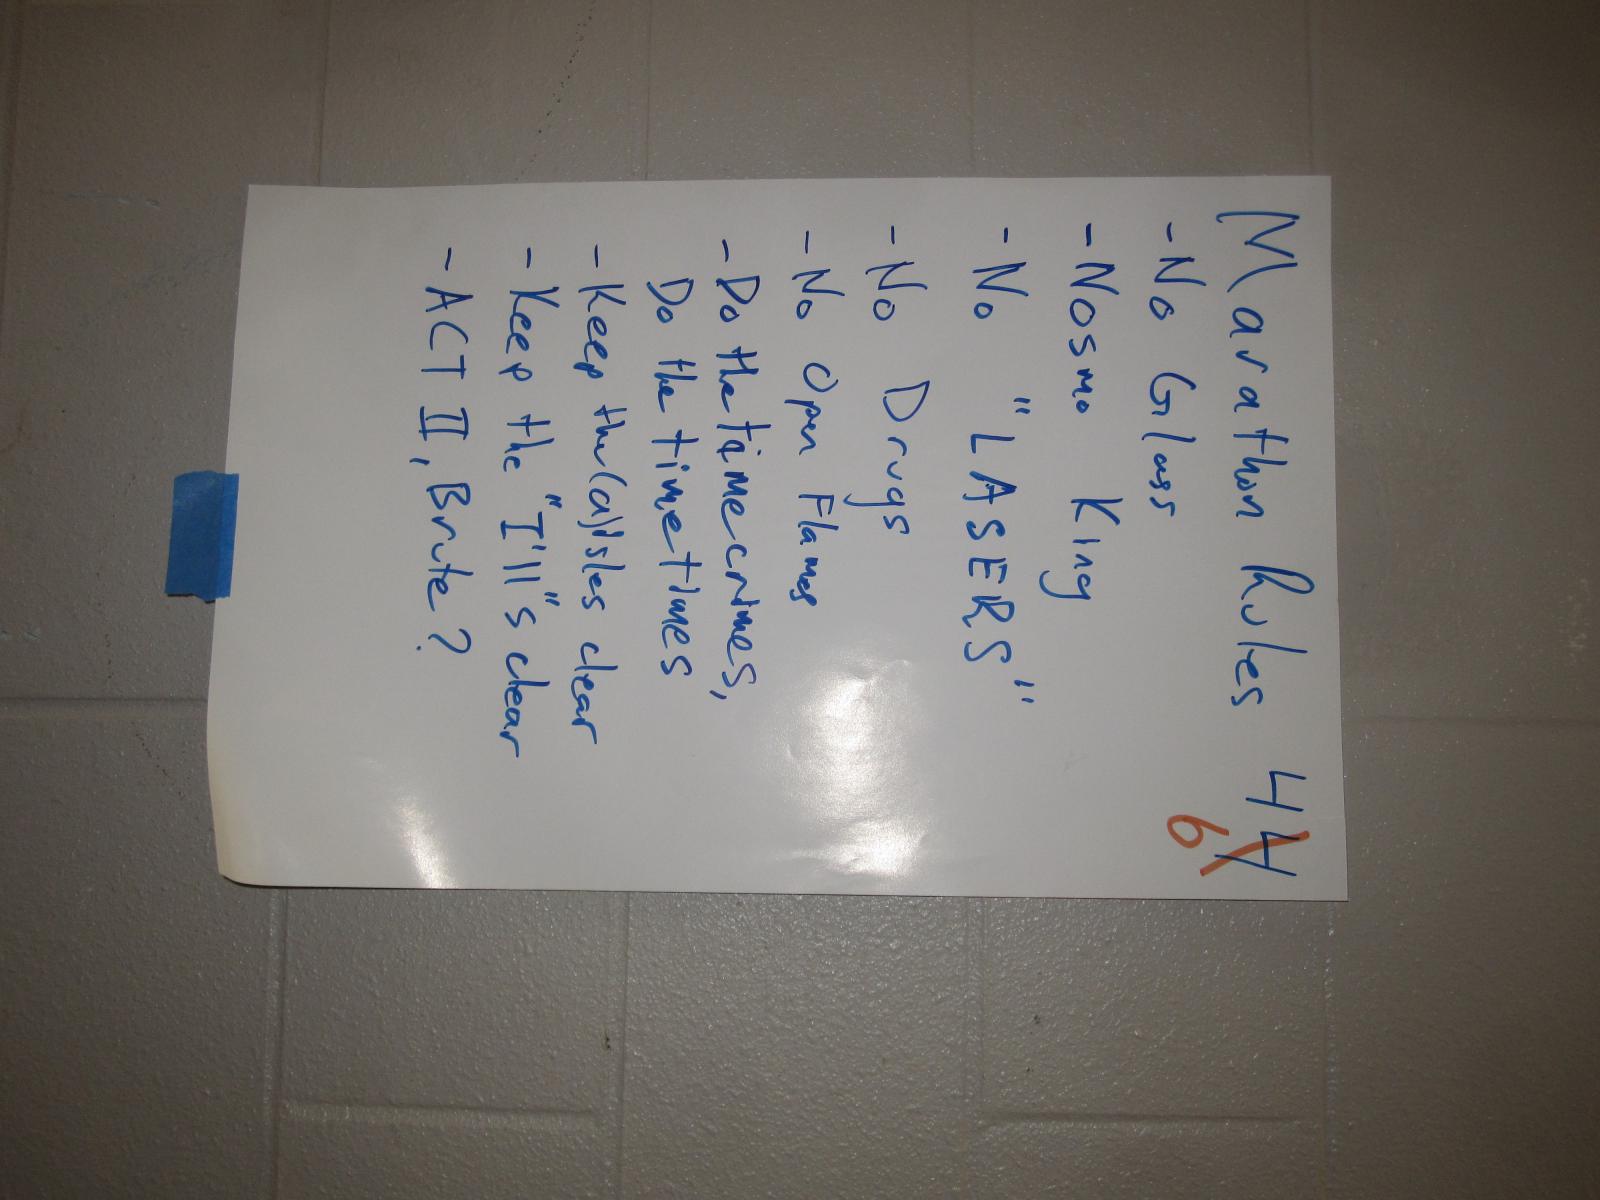 Marathon Rules 44
6
- No Glass
- Nosmo King
- No "LASERS"
- No Drugs
- No Open Flames
- Do the timecrimes,
Do the timetimes
- Keep the (a)isles clear
- Keep the "I'll"s clear
- ACT II, Brute?